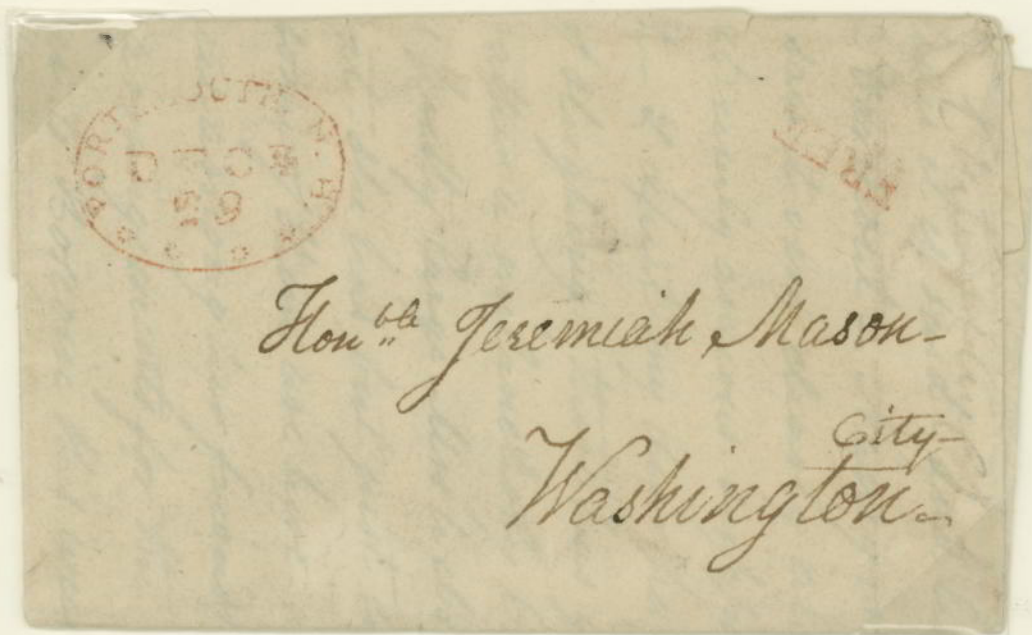 PORTSMOUTH N.H.
DECR
29
FREE
Honble Jeremiah Mason-
City-
Washington-